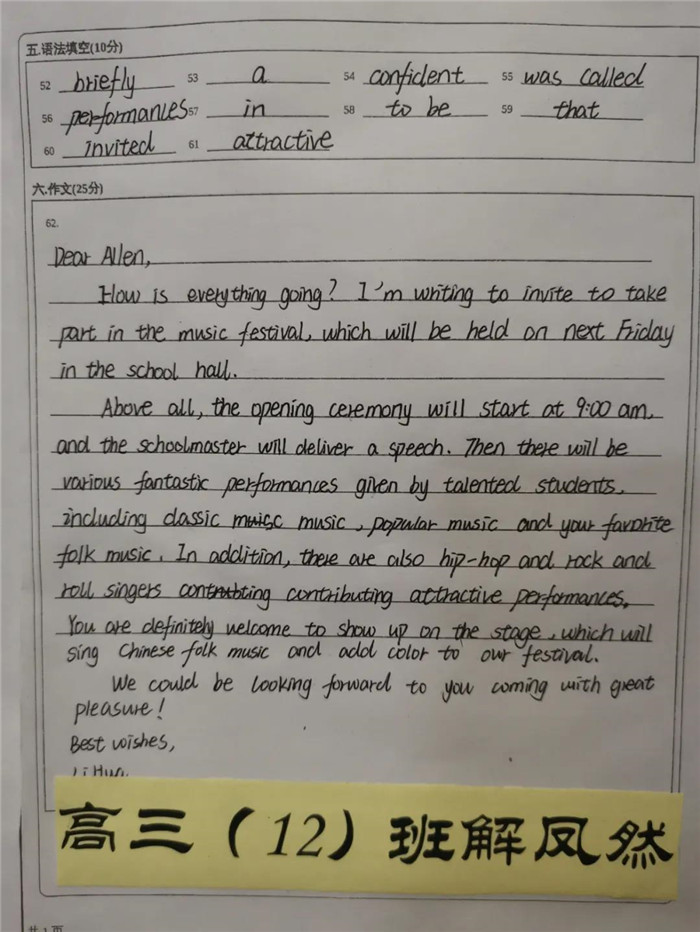 五.语法填空(10分)
52 briefly 53 a 54 confident 55 was called
56 performances 57 in 58 to be 59 that
60 invited 61 attractive
六.作文(25分)
62.
Dear Allen,
How is everything going? I'm writing to invite to take
part in the music festival, which will be held on next Friday
in the school hall.
Above all, the opening ceremony will start at 9:00 am.
and the schoolmaster will deliver a speech. Then there will be
various fantastic performances given by talented students,
including classic music, popular music and your favorite
folk music. In addition, there are also hip-hop and rock and
roll singers contributing attractive performances.
You are definitely welcome to show up on the stage, which will
sing Chinese folk music and add color to our festival.
We could be looking forward to you coming with great
pleasure!
Best wishes,
Li Hua
高三(12)班解凤然
共1页